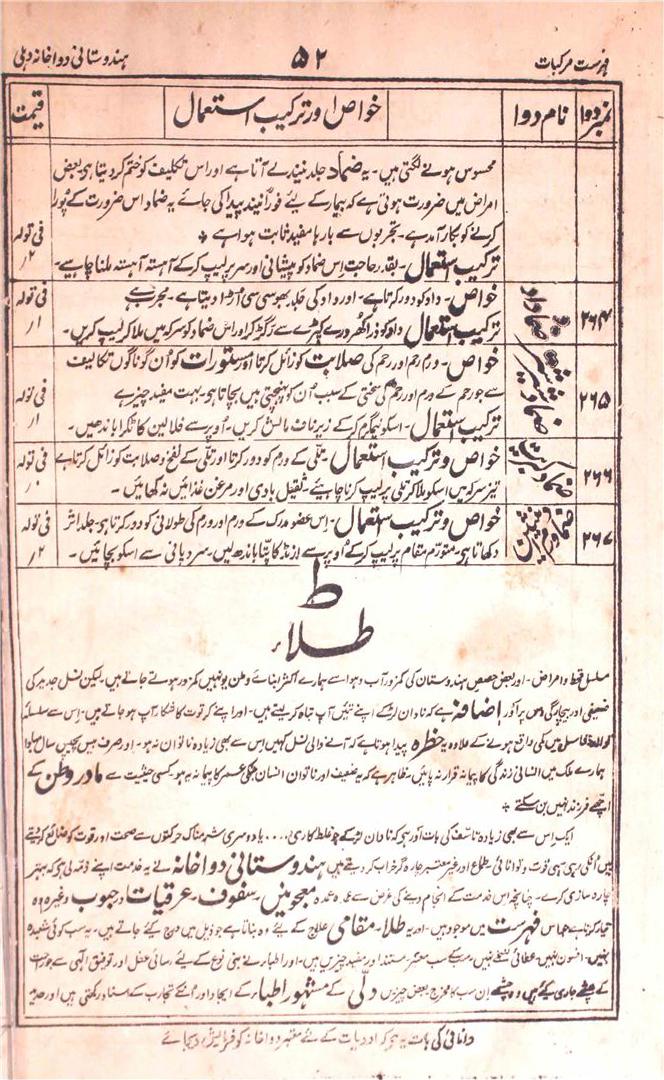 فہرست مرکبات ۵۲ ہندوستانی دواخانہ دہلی
نمبر دوا نام دوا خواص اور ترکیب استعمال قیمت
محسوس ہونے لگتی ہیں۔ یہ ضماد جلد نیند لے آتا ہے اور اس تکلیف کو ختم کر دیتا ہی۔ بعض
امراض میں ضرورت ہوتی ہے کہ بیمار کے لیئے فوراً نیند پیدا کی جائے یہ ضماد اس ضرورت کے پُورا
کرنے کو بکار آمد ہے۔ تجربوں سے بارہا مفید ثابت ہوا ہے ٭ فی تولہ
ترکیب استعمال۔ بقدر حاجت اِس ضماد کو پیشانی اور سر پر لیپ کر کے آہستہ آہستہ ملنا چاہیے۔ ۲ر
۲۶۴ ضماد داد خواص۔ داد کو دور کرتا ہے۔ اور داد کی جلد بھوسی سی اُڑا دیتا ہے۔ مجرب ہے فی تولہ
ترکیب استعمال داد کو ذرا کھُردرے کپڑے سے رگڑ کر اور اس ضماد کو سرکہ میں ملا کر لیپ کریں۔ ۱ر
۲۶۵ ضماد خواص۔ ورم رحم اور رحم کی صلابت کو زائل کرتا اور مستورات کو اُن گوناگوں تکالیف
سے جو رحم کے ورم اور رحم کی سختی کے سبب اُن کو پہنچتی ہیں بچاتا ہی۔ بہت مفید چیز ہے فی تولہ
ترکیب استعمال۔ اسکو نیم گرم کر کے زیر ناف مالش کریں۔ اُوپر سے فلالین کا ٹکڑا باندھیں۔ ۱ر
۲۶۶ ضماد کبریت خواص و ترکیب استعمال۔ تلّی کے ورم کو دور کرتا اور تلّی کے نفخ و صلابت کو زائل کرتا ہے فی تولہ
تیز سرکہ میں اسکو ملا کر تلی پر لیپ کرنا چاہیئے۔ ثقیل بادی اور مرغن غذائیں نہ کھائیں۔
۲۶۷ ضماد ورم خواص و ترکیب استعمال۔ اِس عضو مدرک کے ورم اور ورم کی طولانی کو دور کرتا ہی۔ جلد اثر فی تولہ
دکھاتا ہی۔ متورم مقام پر لیپ کر کے اُوپر سے ارنڈ کا پتّا باندھ لیں۔ سردپانی سے اسکو بچائیں۔ ۲ر
ط
طلاء
مسلسل قحط و امراض۔ اور بعض حصص ہندوستان کی کمزور آب و ہوا سے ہمارے اکثر ابنائے وطن یونہیں کمزور ہوتے جاتے ہیں۔ لیکن نسل جدید کی
ضعیفی اور بیچارگی اس پر اَور اضافہ ہے کہ نادان لڑکے اپنے تئیں آپ تباہ کر لیتے ہیں۔ اور اپنے کرتوت کا شکار آپ ہو جاتے ہیں۔ اِس سے سلسلہ
میں کمی واقع ہونے کے علاوہ یہ خطرہ پیدا ہوتا ہے کہ آنے والی نسل کہیں اِس سے بھی زیادہ ناتوان نہ ہو۔ اور صرف بیس پچیس سال
ہمارے ملک میں انسانی زندگی کا پیمانہ قرار نہ پائیں۔ ظاہر ہے کہ یہ ضعیف اور ناتوان انسان جنکی عمر کا پیمانہ یہ ہو۔ کسی حیثیت سے مادر وطن کے
اچھے فرزند نہیں بن سکتے ٭
ایک اِس سے بھی زیادہ تاسف کی بات اَور ہی کہ نادان لڑکے جو غلط کاری.... یا دوسری شرمناک حرکتوں سے صحت اور قوت کو ضائع کرتے
ہیں اُنکی رہی سہی قوت و توانائی اور غیر معتبر چارہ گر خراب کر دیتے ہیں ہندوستانی دواخانہ نے یہ خدمت اپنے ذمہ لی ہی کہ بہتر
چارہ سازی کرے۔ چنانچہ اِس خدمت کے انجام دینے کی غرض سے عمدہ عمدہ معجونیں۔ سفوف۔ عرقیات و حبوب وغیرہ وہ
تیار کرتا ہے جو اس فہرست میں موجود ہیں۔ اور یہ طلا۔ مقامی علاج کے لیئے وہ بناتا ہے جو ذیل میں درج کیئے جاتے ہیں۔ یہ سب کوئی شعبدہ
نہیں۔ افسون نہیں۔ عطائی نسخے نہیں۔ سب کے سب معتبر۔ مستند اور مفید چیزیں ہیں۔ اور اطبا نے بنی نوع کے لیئے رسائی عقل اور توفیق الٰہی سے جو
کے چشمے جاری کیئے ہیں وہ چشمے اِن سب کا مخرج بعض چیزوں دلّی کے مشہور اطباء کے ایجاد اور اُنکے تجارب کے اسناد رکھتی ہیں اور
دانائی کی بات یہ ہی کہ ادویات کے لئے معتبر دواخانہ کو فرمایش دیجائے